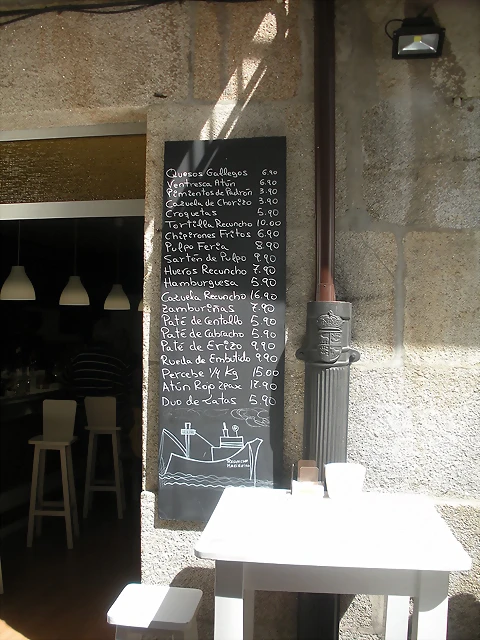 Quesos Gallegos 6.90
Ventresca Atún 6.90
Pimientos de Padrón 3.90
Cazuela de Chorizo 3.90
Croquetas 5.90
Tortilla Recuncho 10.00
Chipirones Fritos 6.90
Pulpo Feria 8.90
Sartén de Pulpo 9.90
Hueros Recuncho 7.90
Hamburguesa 5.90
Cazuela Recuncho 16.90
Zamburiñas 7.90
Paté de Centollo 5.90
Paté de Cabracho 5.90
Paté de Erizo 9.90
Rueda de Embutido 9.90
Percebe 1/4 Kg 15.00
Atún Rojo 2pax 17.90
Duo de Latas 5.90
Recuncho
Marinero